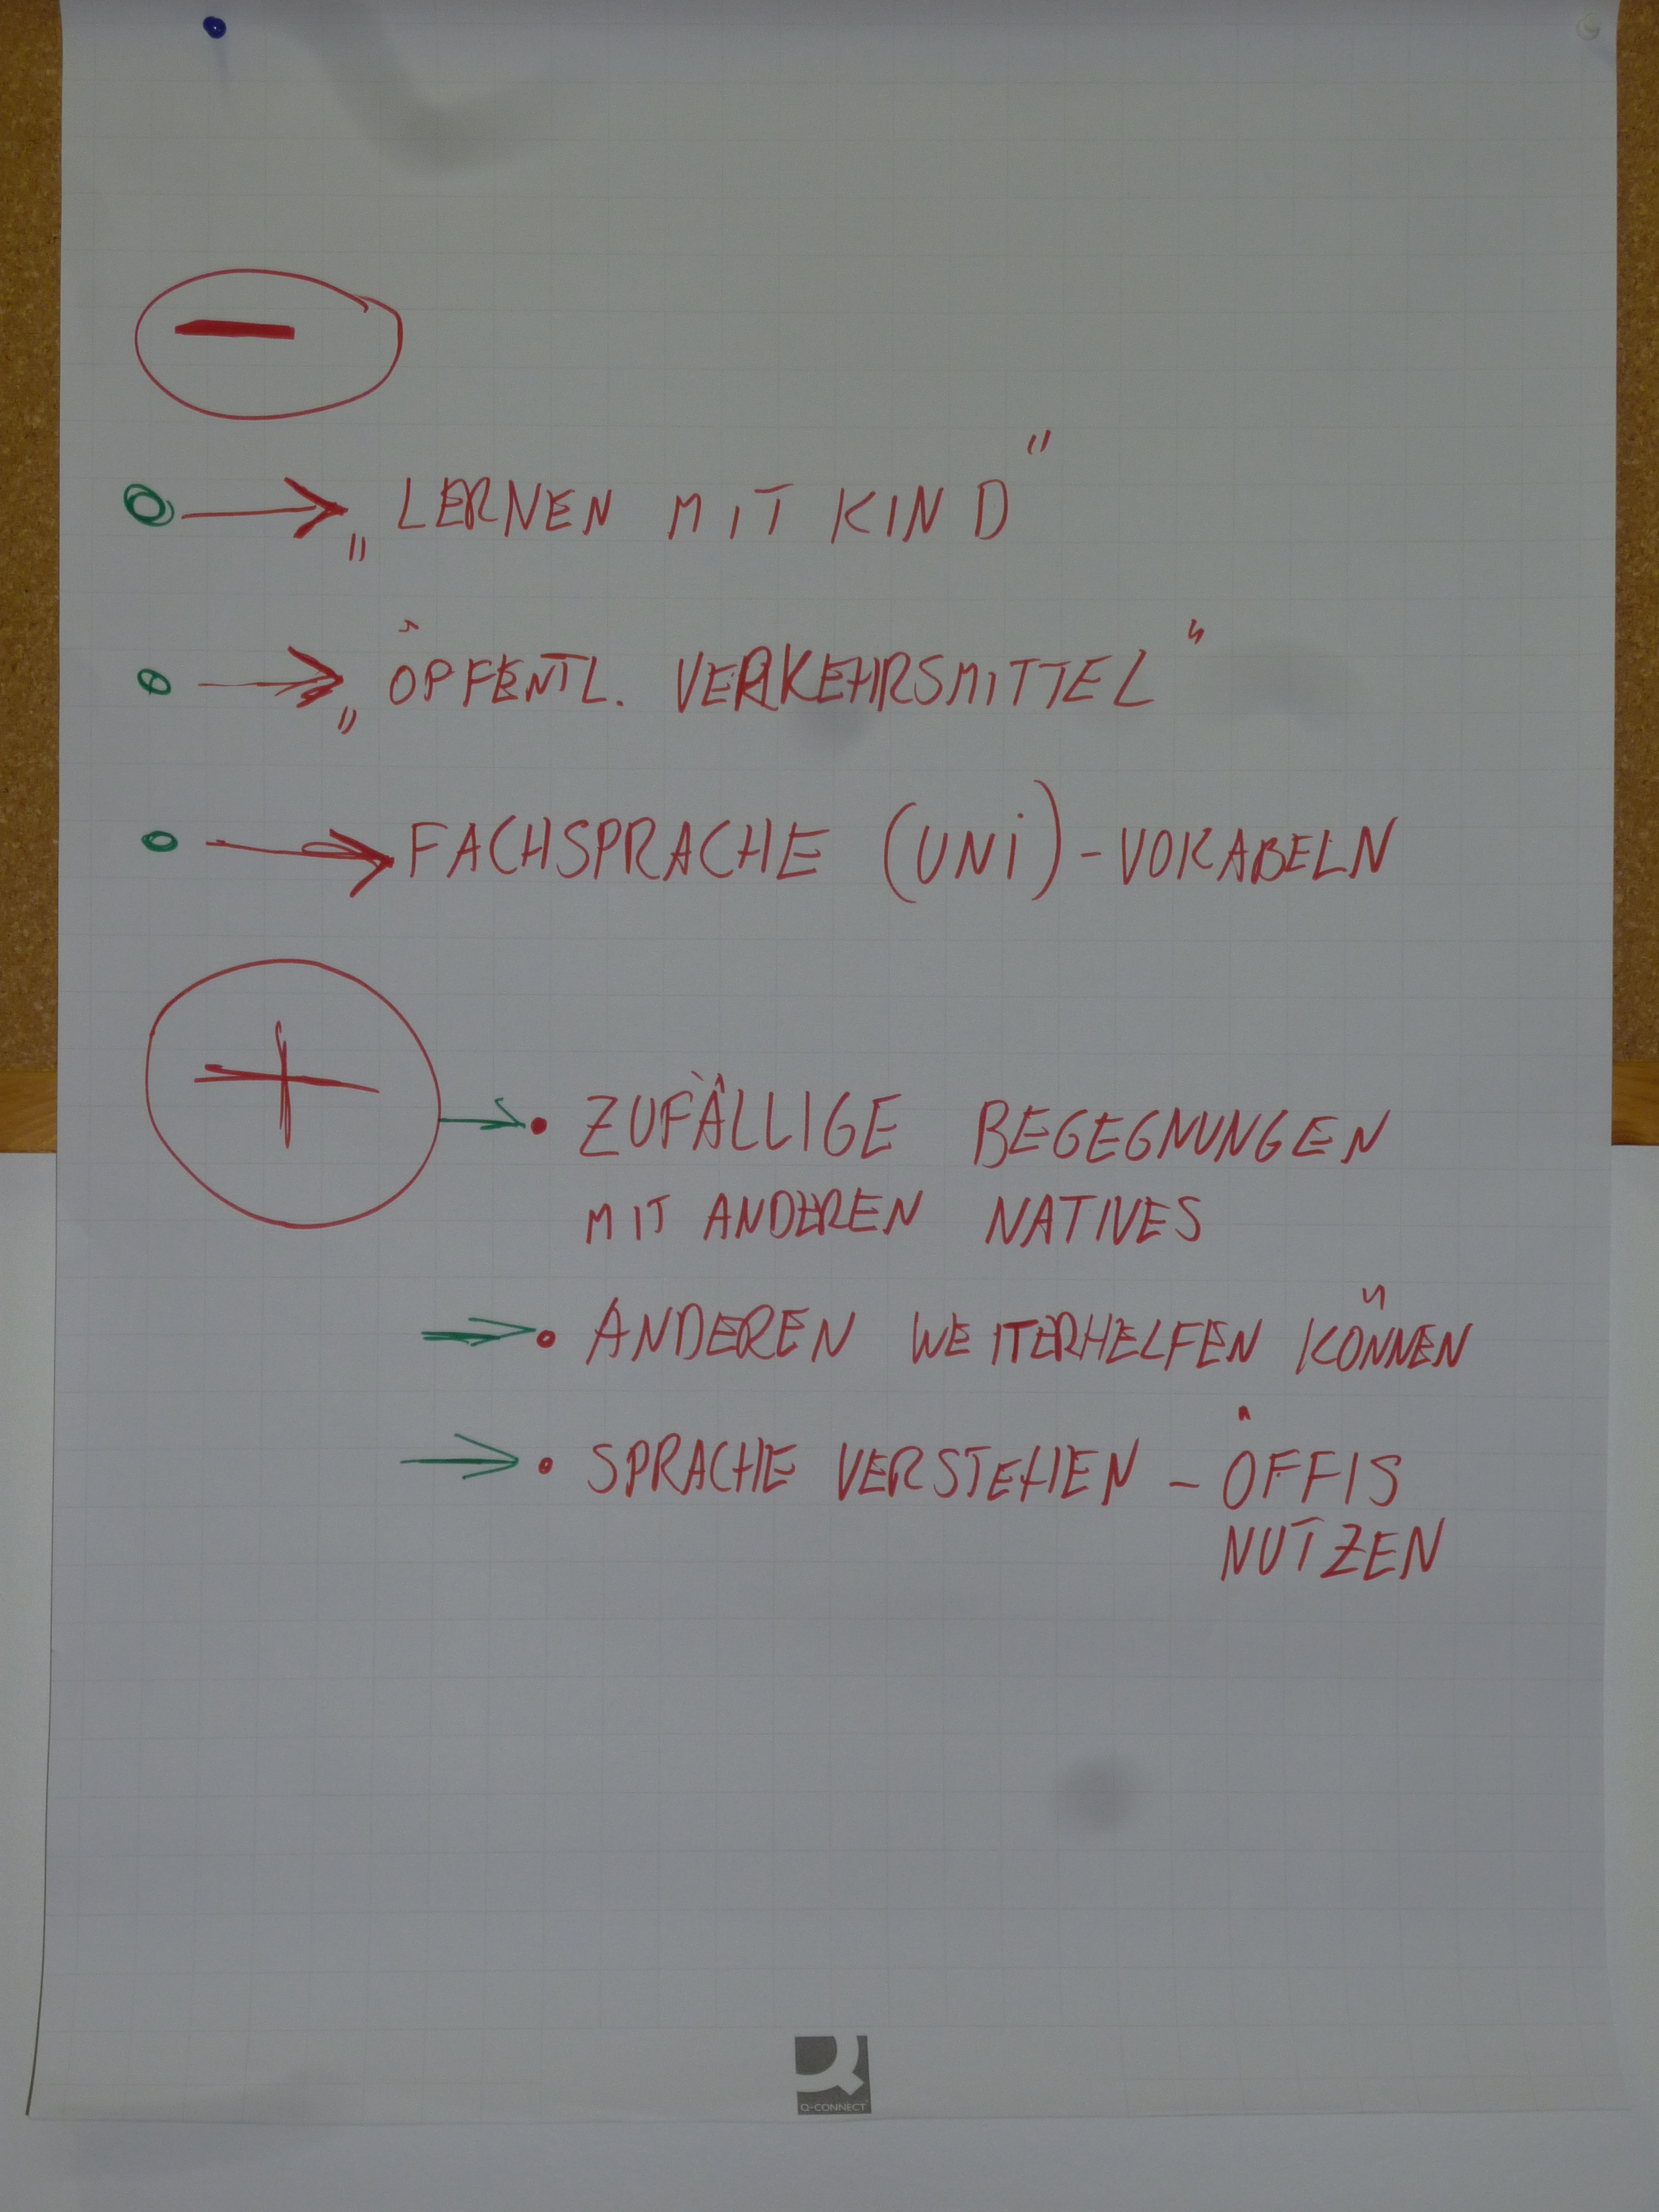 −
→ „LERNEN MIT KIND"
→ „ÖPFENTL. VERKEHRSMITTEL"
→ FACHSPRACHE (UNI)-VOKABELN
+
→ • ZUFÄLLIGE BEGEGNUNGEN
MIT ANDEREN NATIVES
→ • ANDEREN WEITERHELFEN KÖNNEN
→ • SPRACHE VERSTEHEN – ÖFFIS
NUTZEN
Q-CONNECT